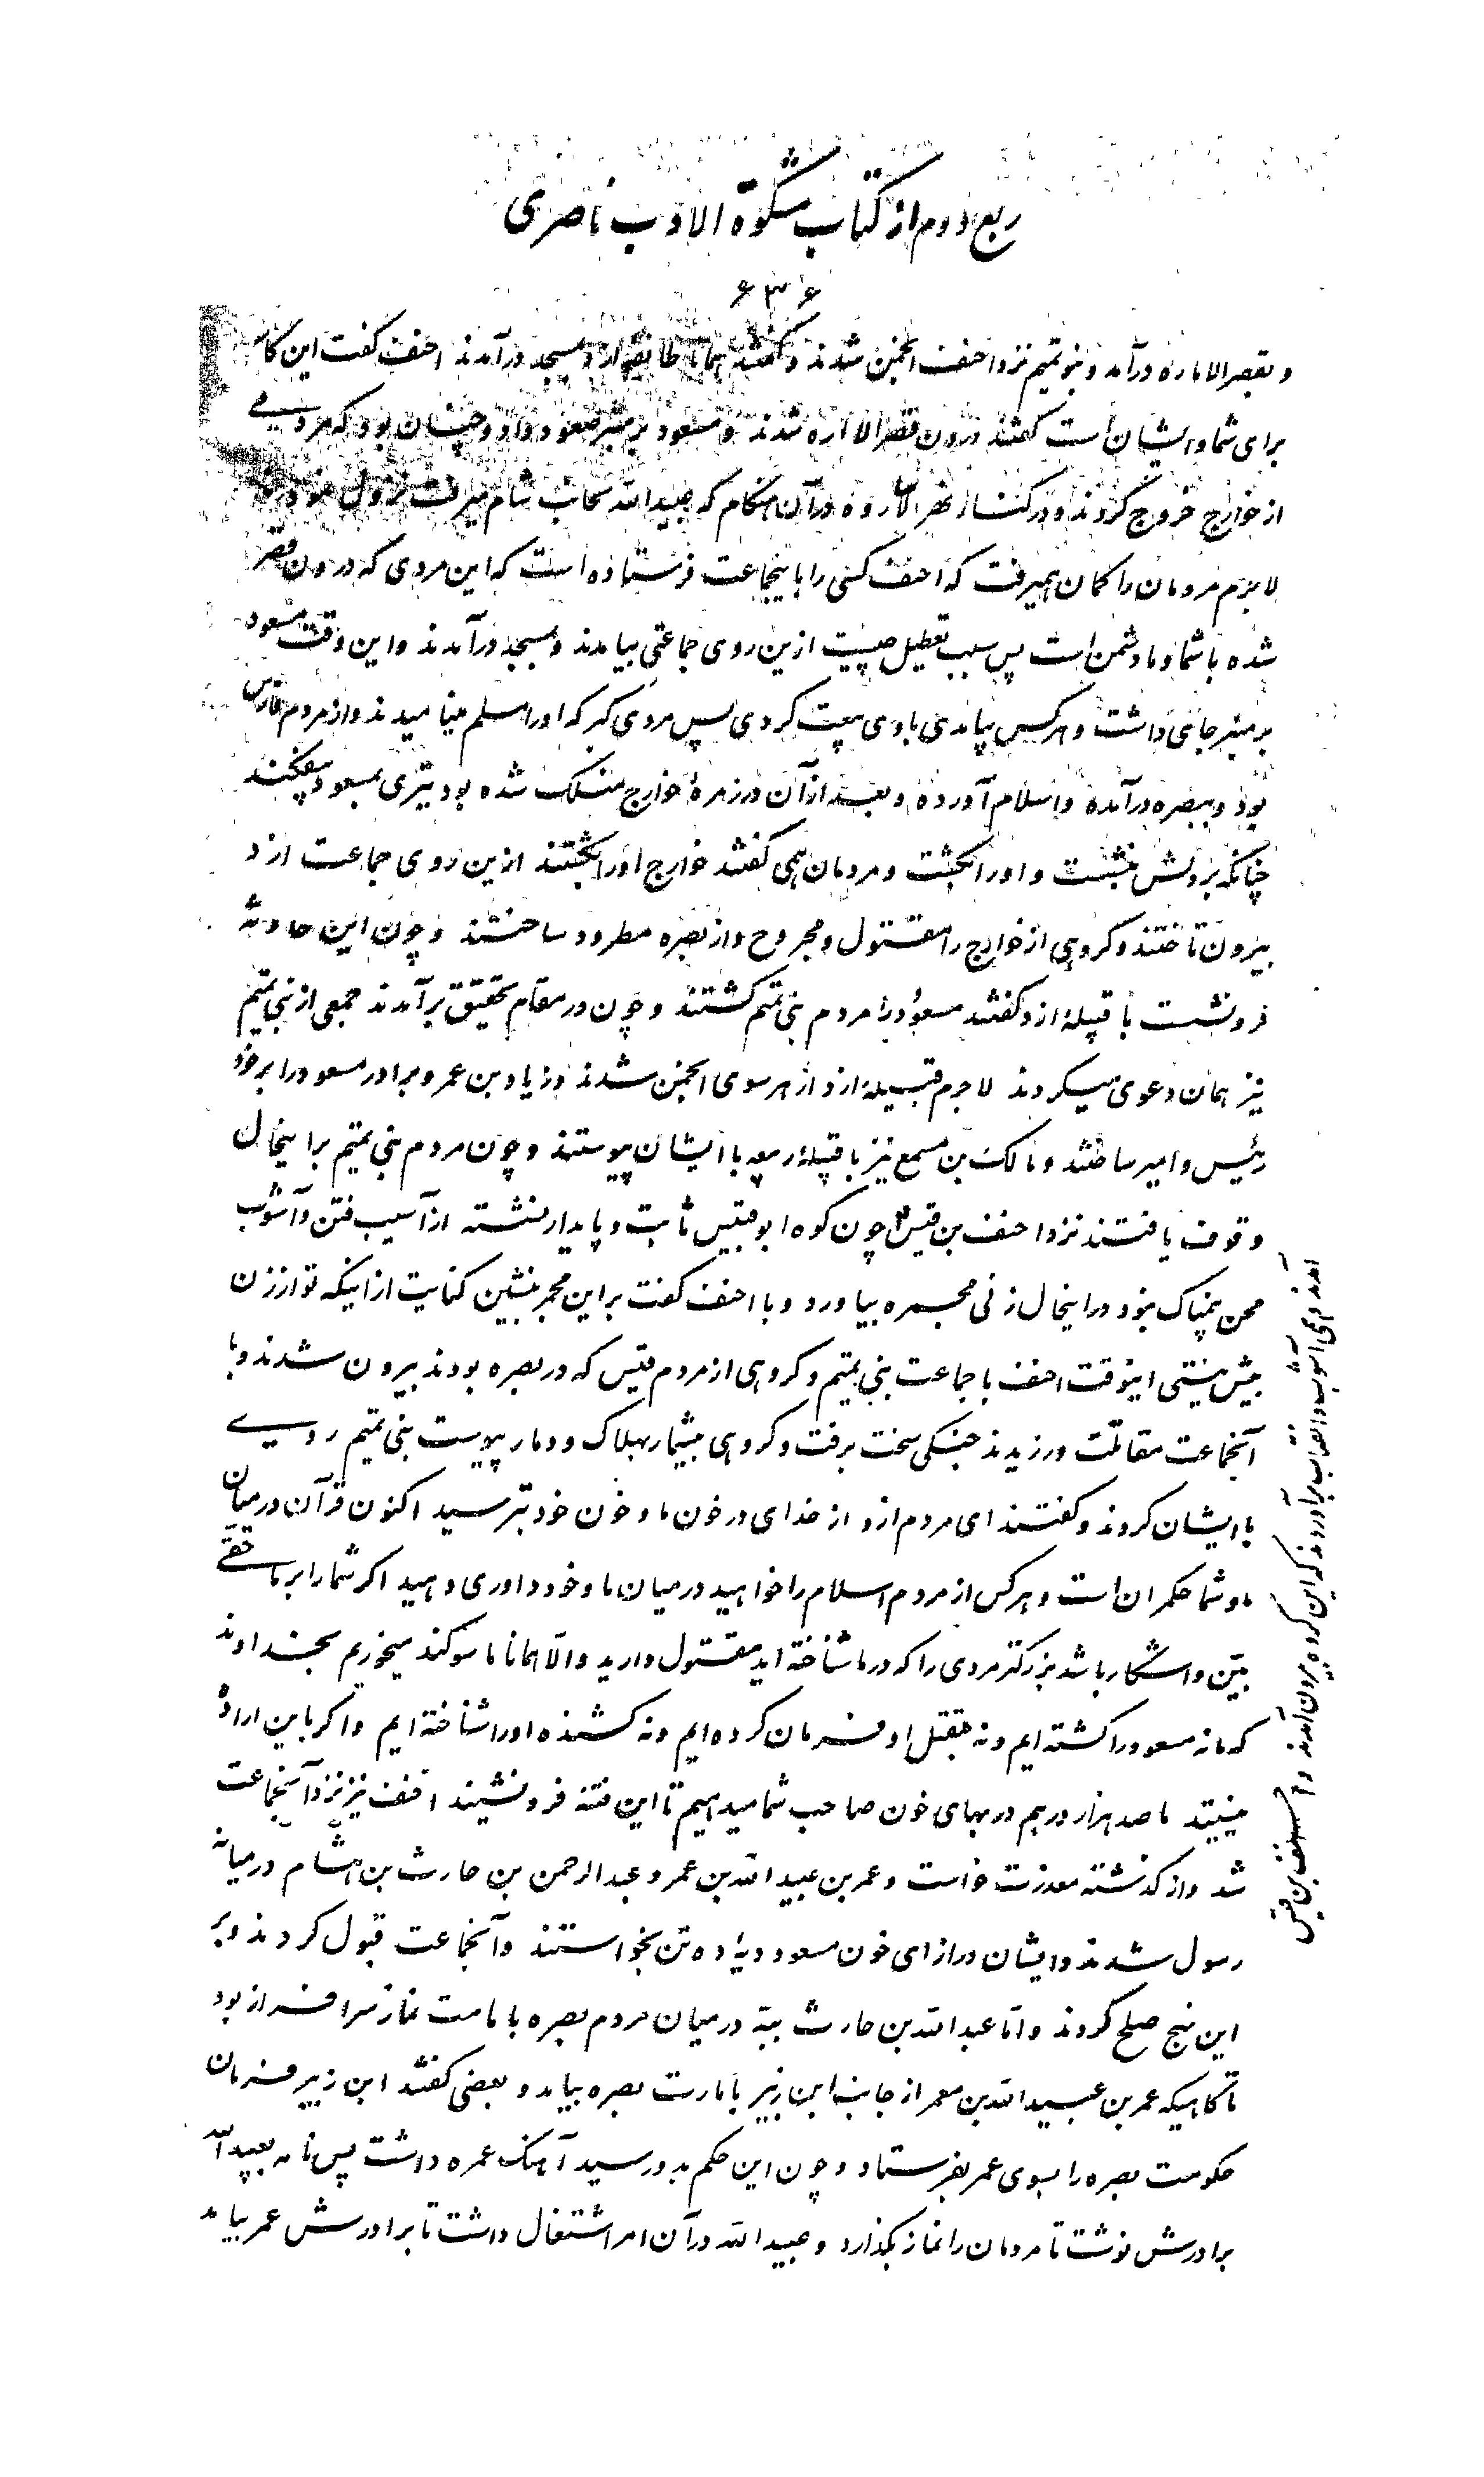 ربع دوم از کتاب مشکوة الادب ناصری
۶۳۶
و بقصر الاماره درآمد و بنو تمیم نزد احنف انجمن شدند و گفتند همانا طایفه ازد بمسجد درآمدند احنف گفت این کار
برای شما و ایشان است گفتند درون قصر الاماره شدند و مسعود بر منبر صعود داد و چنان بود که مردمی
از خوارج خروج کردند و در کنار نهر الاساوره در آن هنگام که عبیدالله بجانب شام میرفت نزول نمودند
لاجرم مردمان را گمان همیرفت که احنف کسی را باینجماعت فرستاده است که این مردی که درون قصر
شده با شما و ما دشمن است پس سبب تعطیل چیست ازین روی جماعتی بیامدند و بمسجد درآمدند و این وقت مسعود
بر منبر جای داشت و هر کس بیامدی با وی بیعت کردی پس مردی گبر که او را مسلم مینامیدند و از مردم فارس
بود و ببصره درآمده و اسلام آورده و بعد از آن در زمرهٔ خوارج منسلک شده بود تیری بمسعود بیفکند
چنانکه بر دلش بنشست و او را بکشت و مردمان همی گفتند خوارج او را بکشتند ازین روی جماعت ازد
بیرون تاختند و گروهی از خوارج را مقتول و مجروح و از بصره مطرود ساختند و چون این حادثه
فرونشست با قبیلهٔ ازد گفتند مسعود را مردم بنی تمیم کشتند و چون در مقام تحقیق برآمدند جمعی از بنی تمیم
نیز همان دعوی میکردند لاجرم قبیلهٔ ازد از هر سوی انجمن شدند و زیاد بن عمرو برادر مسعود را بر خود
رئیس و امیر ساختند و مالک بن مسمع نیز با قبیلهٔ ربیعه با ایشان پیوستند و چون مردم بنی تمیم بر اینحال
وقوف یافتند نزد احنف بن قیس چون کوه ابوقبیس ثابت و پایدار نشسته از آسیب فتن و آشوب
محن بیمناک نبود در اینحال زنی مجمره بیاورد و با احنف گفت بر این مجمر بنشین کنایت از اینکه تو از زن
بیش نیستی اینوقت احنف با جماعت بنی تمیم و گروهی از مردم قیس که در بصره بودند بیرون شدند و با
آنجماعت مقاتلت ورزیدند جنگی سخت برفت و گروهی بیشمار بهلاک و دمار پیوست بنی تمیم روی
با ایشان کردند و گفتند ای مردم ازد از خدای در خون ما و خون خود بترسید اکنون قرآن در میان
ما و شما حکمران است و هر کس از مردم اسلام را خواهید در میان ما و خود داوری دهید اگر شما را بر ما حقی
بیّن و آشکار باشد بزرگتر مردی را که در ما شناخته اید مقتول دارید و الا همانا ما سوگند میخوریم بخداوند
که ما نه مسعود را کشته ایم و نه بقتل او فرمان کرده ایم و نه کشنده او را شناخته ایم و اگر باین ارادهٔ
نیستید ما صد هزار درهم در بهای خون صاحب شما میدهیم تا این فتنه فرونشیند احنف نیز نزد آنجماعت
شد و از گذشته معذرت خواست و عمر بن عبیدالله بن عمر و عبدالرحمن بن حارث بن هشام در میانه
رسول شدند و ایشان در ازای خون مسعود دیهٔ ده تن بخواستند و آنجماعت قبول کردند و بر
این نهج صلح کردند و اما عبدالله بن حارث ببّه در میان مردم بصره بامامت نماز سرافراز بود
تا گاهیکه عمر بن عبیدالله بن معمر از جانب ابن زبیر بامارت بصره بیامد و بعضی گفتند ابن زبیر فرمان
حکومت بصره را بسوی عمر بفرستاد و چون این حکم بدو رسید آهنگ عمره داشت پس نامه بعبیدالله
برادرش نوشت تا مردمان را نماز بگذارد و عبیدالله در آن امر اشتغال داشت تا برادرش عمر بیامد
آمدند و همی آشوب و انقلاب برآوردند که این گروه بیرون آمدند و احنف بن قیس